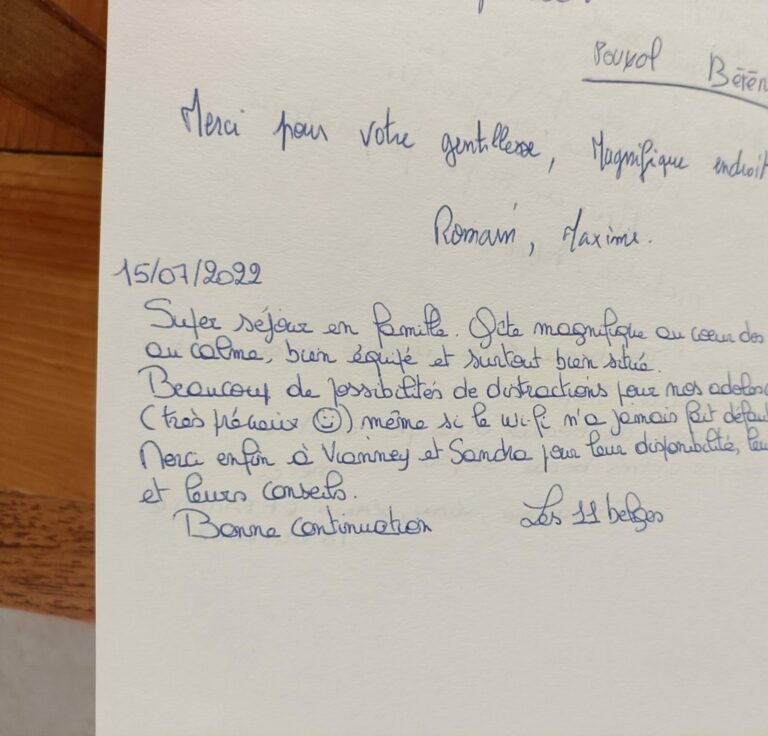 Pouxol Bérén
Merci pour votre gentillesse, Magnifique endroit
Romain, Maxime.
15/07/2022
Super séjour en famille. Gîte magnifique au coeur des
au calme, bien équipé et surtout bien situé.
Beaucoup de possibilités de distractions pour nos adolesc
(très précieux ☺) même si le wi-fi n'a jamais fait défau
Merci enfin à Vianney et Sandra pour leur disponibilité, leu
et leurs conseils.
Bonne continuation Les 11 belges